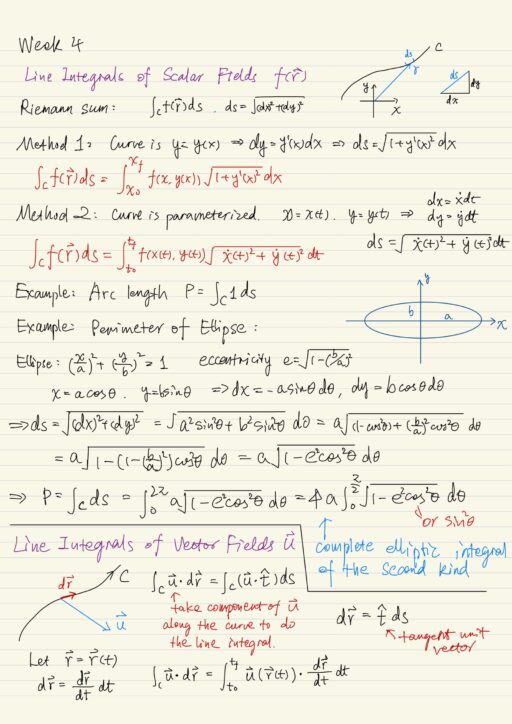 Week 4
Line Integrals of Scalar Fields f(r⃗)
Riemann sum: ∫_C f(r⃗)ds . ds = √((dx)²+(dy)²)
ds C r⃗ y x
ds dy dx
Method 1: Curve is y = y(x) ⇒ dy = y'(x)dx ⇒ ds = √(1+y'(x)²) dx
∫_C f(r⃗)ds = ∫_{x₀}^{x_f} f(x, y(x)) √(1+y'(x)²) dx
Method 2: Curve is parameterized. x = x(t). y = y(t) ⇒ dx = ẋdt
dy = ẏdt
∫_C f(r⃗)ds = ∫_{t₀}^{t_f} f(x(t), y(t)) √(ẋ(t)² + ẏ(t)²) dt
ds = √(ẋ(t)² + ẏ(t)²) dt
Example: Arc length P = ∫_C 1 ds
Example: Perimeter of Ellipse:
y b a x
Ellipse: (x/a)² + (y/b)² = 1 eccentricity e = √(1-(b/a)²)
x = a cosθ . y = b sinθ ⇒ dx = -a sinθ dθ, dy = b cosθ dθ
⇒ ds = √((dx)²+(dy)²) = √(a² sin²θ + b² sin²θ) dθ = a√((1-cos²θ) + (b/a)² cos²θ) dθ
= a√(1-(1-(b/a)²)cos²θ) dθ = a√(1-e²cos²θ) dθ
⇒ P = ∫_C ds = ∫_0^{2π} a√(1-e²cos²θ) dθ = 4a ∫_0^{π/2} √(1-e²cos²θ) dθ
or sin²θ
complete elliptic integral
of the second kind
Line Integrals of Vector Fields u⃗
dr⃗ C u⃗
∫_C u⃗·dr⃗ = ∫_C (u⃗·t̂)ds
take component of u⃗
along the curve to do
the line integral.
dr⃗ = t̂ ds
tangent unit
vector
Let r⃗ = r⃗(t)
dr⃗ = dr⃗/dt dt
∫_C u⃗·dr⃗ = ∫_{t₀}^{t_f} u⃗(r⃗(t))·dr⃗/dt dt